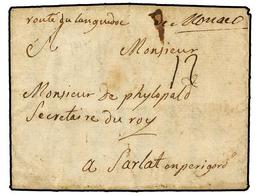 route du languedoc de Monaco
A Monsieur
12
Monsieur de phylopald
Secretaire du roy
a Sarlat en perigord